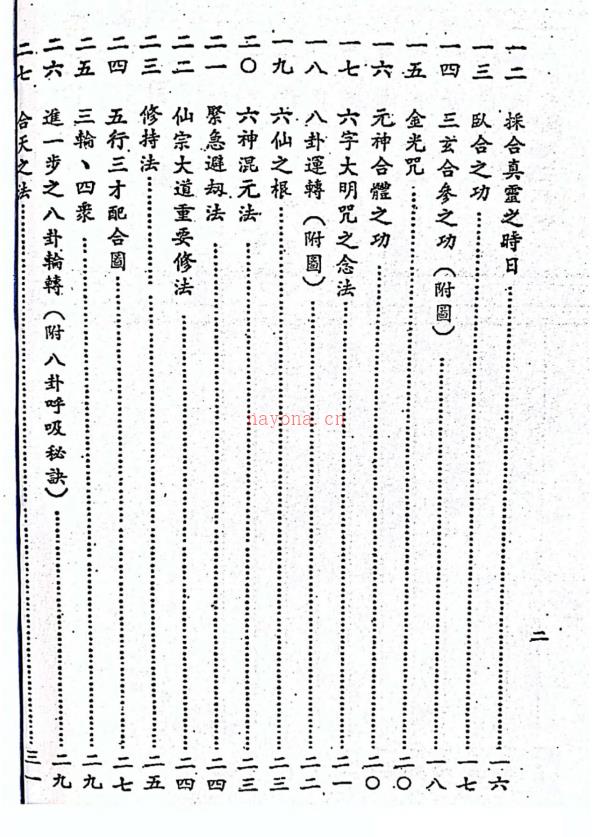 一二 採合真靈之時日……一六
一三 臥合之功……一七
一四 三玄合參之功（附圖）……一八
一五 金光咒……二〇
一六 元神合體之功……二〇
一七 六字大明咒之念法……二一
一八 八卦運轉（附圖）……二二
一九 六仙之根……二三
二〇 六神混元法……二三
二一 緊急避刼法……二四
二二 仙宗大道重要修法……二四
二三 修持法……二五
二四 五行三才配合圖……二七
二五 三輪、四衆……二九
二六 進一步之八卦輪轉（附八卦呼吸秘訣）……二九
二七 合天之法……三一
二
nayona.cn